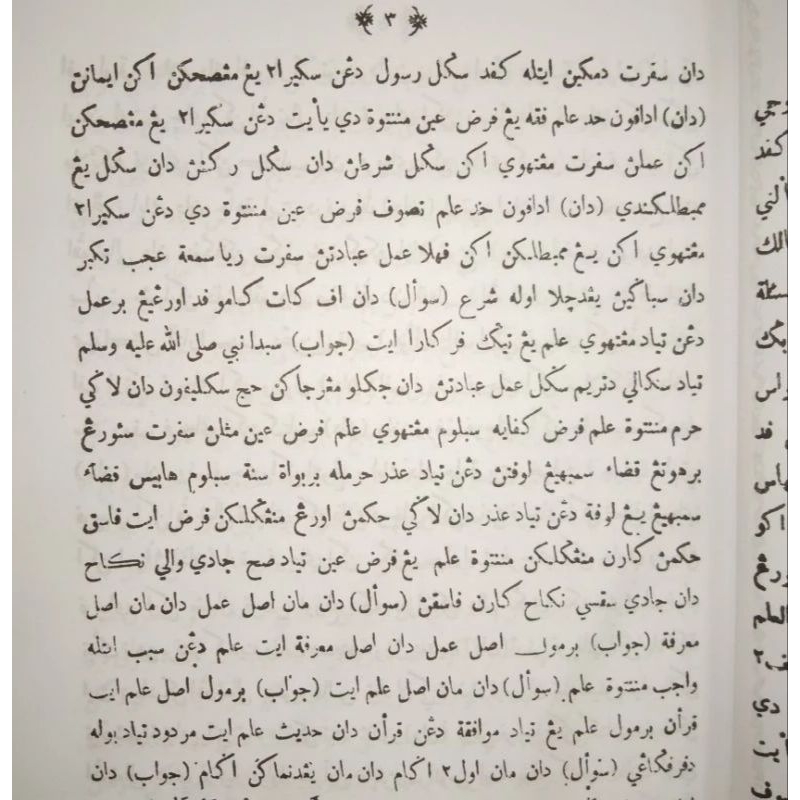 ٣
دان سفرت دمكين ايتله كفد سكل رسول دڠن سكيرا٢ يڠ مڠصحكن اكن ايمانن
(دان) ادافون حد علم فقه يڠ فرض عين منتوة دي يأيت دڠن سكيرا٢ يڠ مڠصحكن
اكن عملن سفرت مڠتهوي اكن سكل شرطن دان سكل ركنن دان سكل يڠ
ممبطلكندي (دان) ادافون حد علم تصوف فرض عين منتوة دي دڠن سكيرا٢
مڠتهوي اكن يڠ ممبطلكن اكن فهلا عمل عبادتن سفرت ريا سمعة عجب تكبر
دان سباڬين يڠدچلا اوله شرع (سوأل) دان اف كات كامو فد اورڠيڠ برعمل
دڠن تياد مڠتهوي علم يڠ تيڬ فركارا ايت (جواب) سبدا نبي صلى الله عليه وسلم
تياد سكالي دتريم سكل عمل عبادتن دان جكلو مڠرجاكن حج سكليفون دان لاڬي
حرم منتوة علم فرض كفايه سبلوم مڠتهوي علم فرض عين مثلن سفرت سئورڠ
برهوتڠ قضاء سمبهيڠ لوفتن دڠن تياد عذر حرمله بربواة سنة سبلوم هابيس قضاء
سمبهيڠ يڠ لوفة دڠن تياد عذر دان لاڬي حكمن اورڠ منڠڬلكن فرض ايت فاسق
حكمن كارن منڠڬلكن منتوة علم يڠ فرض عين تياد صح جادي والي نكاح
دان جادي سقسي نكاح كارن فاسقن (سوأل) دان مان اصل عمل دان مان اصل
معرفة (جواب) برمول اصل عمل دان اصل معرفة ايت علم دڠن سبب ايتله
واجب منتوة علم (سوأل) دان مان اصل علم ايت (جواب) برمول اصل علم ايت
قرأن برمول علم يڠ تياد موافقة دڠن قرأن دان حديث علم ايت مردود تياد بوله
دفرفڬاڠي (سوأل) دان مان اول٢ اڬام دان مان يڠدنماكن اڬام (جواب) دان